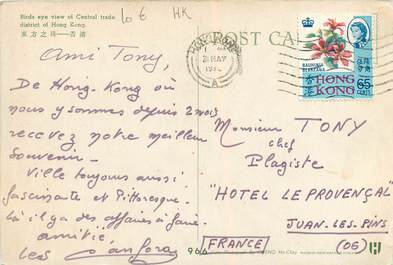 Birds eye view of Central trade
district of Hong Kong.
東方之珠—香港
10 € HK
POST CARD
HONG KONG
MAY
A
BAUHINIA
BLAKEANA
HONG
KONG
65
CENTS
香港
Ami Tony,
De Hong. Kong où
nous y sommes depuis 2 mois
recevez notre meilleur
souvenir.
Ville toujours aussi
fascinante et Pittoresque.
Là il y a des affaires à faire
amitié,
Les
Monsieur TONY
chef
Plagiste
"HOTEL LE PROVENÇAL"
JUAN-LES-PINS
(06)
FRANCE
966